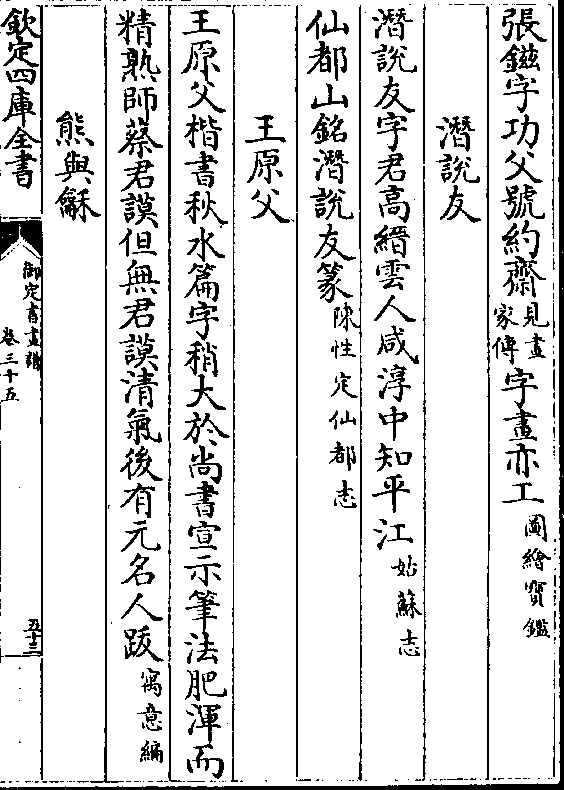 張鎡字功父號約齋見畫家傳字畫亦工圖繪寶鑑
潛說友
潛說友字君高縉雲人咸淳中知平江姑蘇志
仙都山銘潛說友篆陳性定仙都志
王原父
王原父楷書秋水篇字稍大於尚書宣示筆法肥渾而
精熟師蔡君謨但無君謨清氣後有元名人跋寓意編
熊與龢
欽定四庫全書
御定書畫譜
卷三十五
五十三